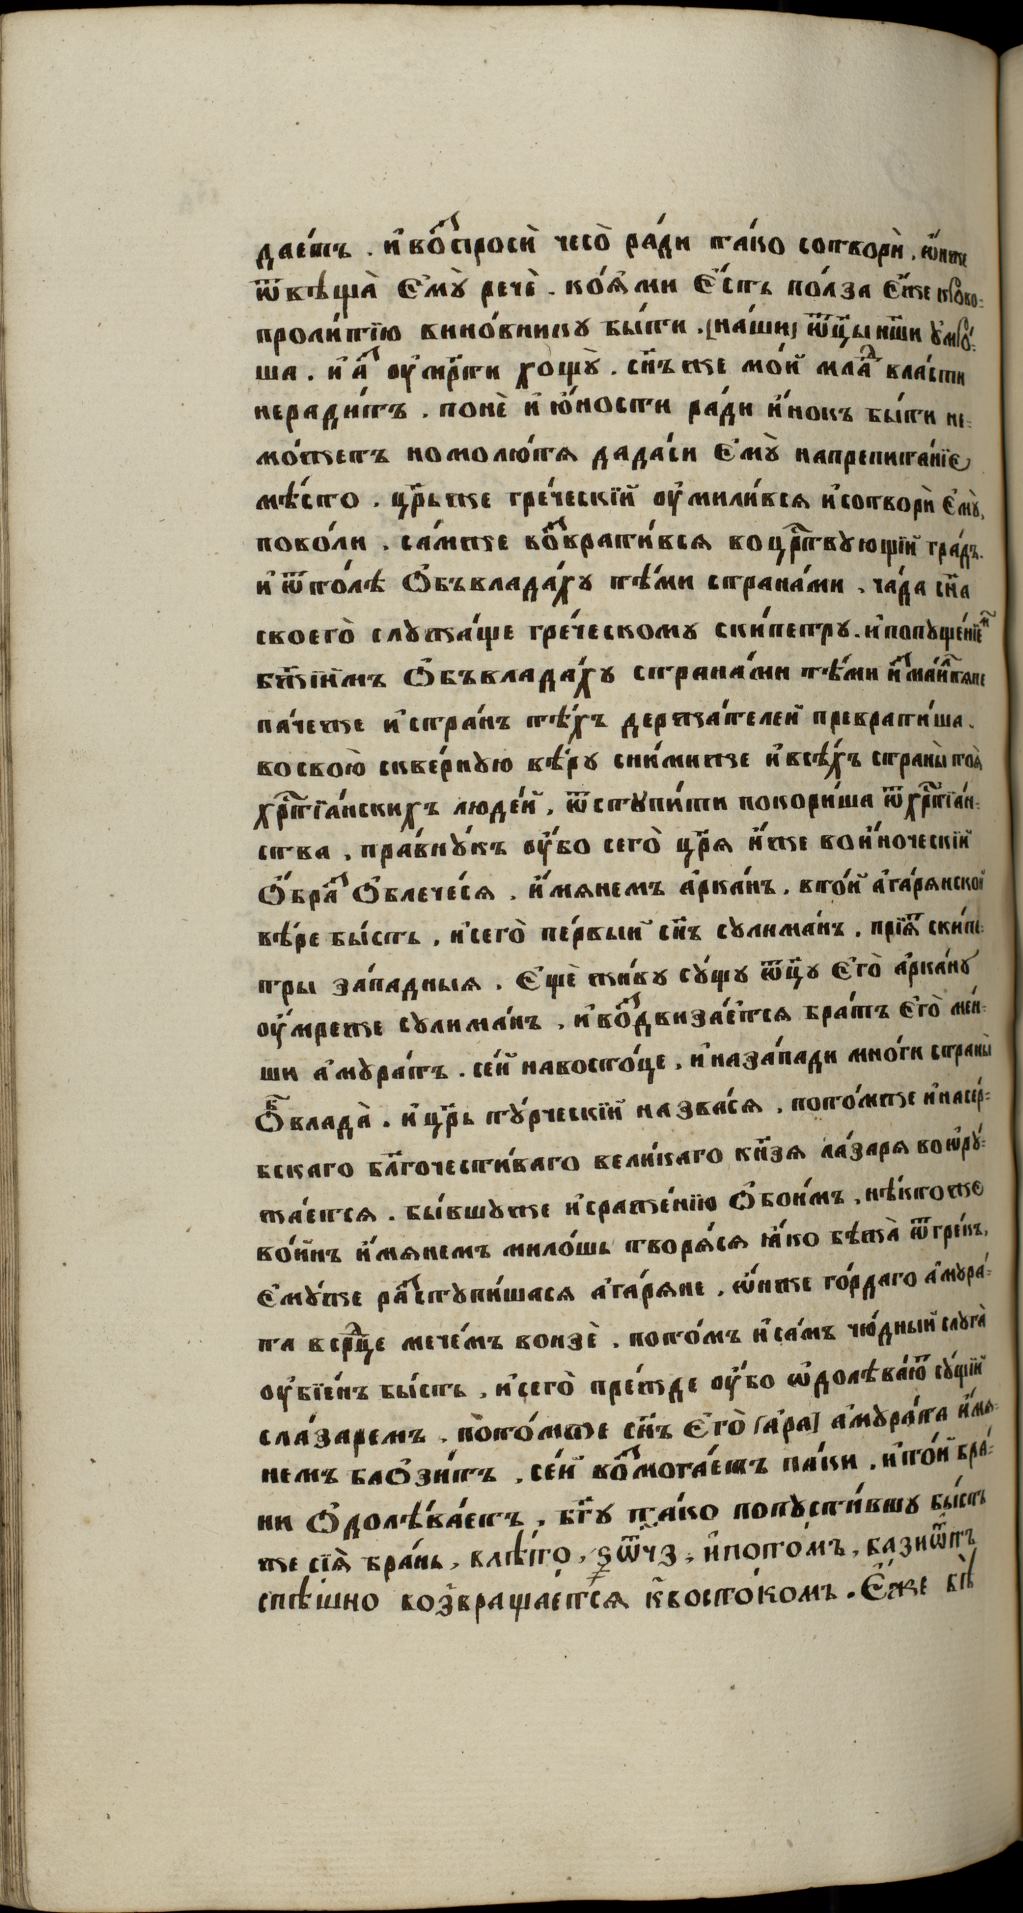 дае́тъ . и҆ вопⷭ҇росѝ чесо̀ ра́ди та́ко сотворѝ . ѡ҆́нже
ѿвѣща̀ є҆мꙋ̀ речѐ . ко́ѧ ми є҆́сть по́лза є҆́же крово-
проли́тїю вино́вникꙋ бы́ти . [на́ши] ѿц҃ы нш҃и ᲂу҆мро́-
ша . и҆ а҆́зⷥ ᲂу҆мр҃ти хощꙋ̀ . сн҃ъ же мо́й млаⷣ вла́сти
неради́тъ . понѐ и҆ ю҆́ности ра́ди и҆́нокъ бы́ти не-
мо́жетъ но молю́тѧ да да́си є҆мꙋ̀ на препита́нїе
мѣ́сто . цр҃ь же гре́ческїй ᲂу҆мили́всѧ и҆ сотворѝ є҆мꙋ̀,
поко́ли . са́мже воⷥврати́всѧ во црⷭ҇твꙋющїй гра́дъ.
и҆ ѿто́лѣ ѻ҆бъвлада́хꙋ тѣ́ми страна́ми . ча́да сн҃а
своего̀ слꙋжа́ще гре́ческомꙋ ски́петрꙋ . и҆ попꙋще́нїеⷨ
бж҃їимъ ѻ҆бъвлада́хꙋ страна́ми тѣ́ми и҆ⷥмаи́лтѧне
па́чеже и҆ стра́нъ тѣ́хъ держа́телей преврати́ша .
во свою̀ скве́рнꙋю вѣ́рꙋ сни́миже и҆ всѣ́хъ страны̀ тоѧ̀
хрⷭ҇тїа́нскихъ люде́й , ѿстꙋпи́ти покори́ша ѿ хрⷭ҇тїа́н-
ства , пра́внꙋкъ ᲂу҆́бо сего̀ цр҃ѧ и҆́же во и҆́ноческїй
ѻ҆́браⷥ ѻ҆блече́сѧ . и҆́мѧнемъ а҆рка́нъ . в то́й а҆га́рѧнской
вѣ́ре бы́сть , и҆ сего̀ пе́рвый сн҃ъ сꙋлима́нъ . прїѧ́т ски́пе-
тры за́падныѧ . є҆щѐ живꙋ сꙋ́щꙋ ѿц҃ꙋ є҆гѡ̀ а҆рка́нꙋ
ᲂу҆́мреже сꙋлима́нъ , и҆ воⷥдвиза́етсѧ бра́тъ є҆го̀ ме́н-
ши а҆мꙋра́тъ . се́й на восто́це , и҆ на за́пади мно́ги страны̀
ѻ҆б̾влада̀ . и҆ цр҃ь тꙋ́рческїй назва́сѧ , пото́мже и҆ на се́р-
бскаго бл҃гочести́ваго вели́каго кн҃зѧ ла́зарѧ воѡ҆рꙋ-
жа́етсѧ . бы́вшꙋже и҆ сраже́нїю ѻ҆бои́мъ , нѣ́ктоже
во́инъ и҆́мѧнемъ мило́шь творѧ́сѧ ꙗ҆́ко бѣжа̀ ѿ гре́къ,
є҆мꙋ́же раⷭ҇стꙋпи́шасѧ а҆га́рѧне , ѡ҆́нже го́рдаго а҆мꙋра́-
та в срⷣце мече́мъ вонзѐ . пото́мъ и҆ са́мъ чю́дный слꙋга̀
ᲂу҆бїе́нъ бы́сть , и҆ сего̀ пре́жде ᲂу҆́бо ѡ҆долѣва́юⷮ сꙋ́щїи
с ла́заремъ . пото́мже сн҃ъ є҆го̀ [а҆ра] а҆мꙋра́та и҆́мѧ-
немъ баѻзи́тъ , се́й воⷥмога́етъ па́ки . и҆ то́й бра́-
ни ѻ҆долѣва́етъ , бг҃ꙋ та́ко попꙋсти́вшꙋ бы́сть
же сїѧ̀ бра́нь , в лѣ́то , ҂ѕѿчз , и҆ пото́мъ , базиѻ҆́тъ
спѣ́шно возвраща́етсѧ к̾ восто́комъ . є҆́же бѣ̀